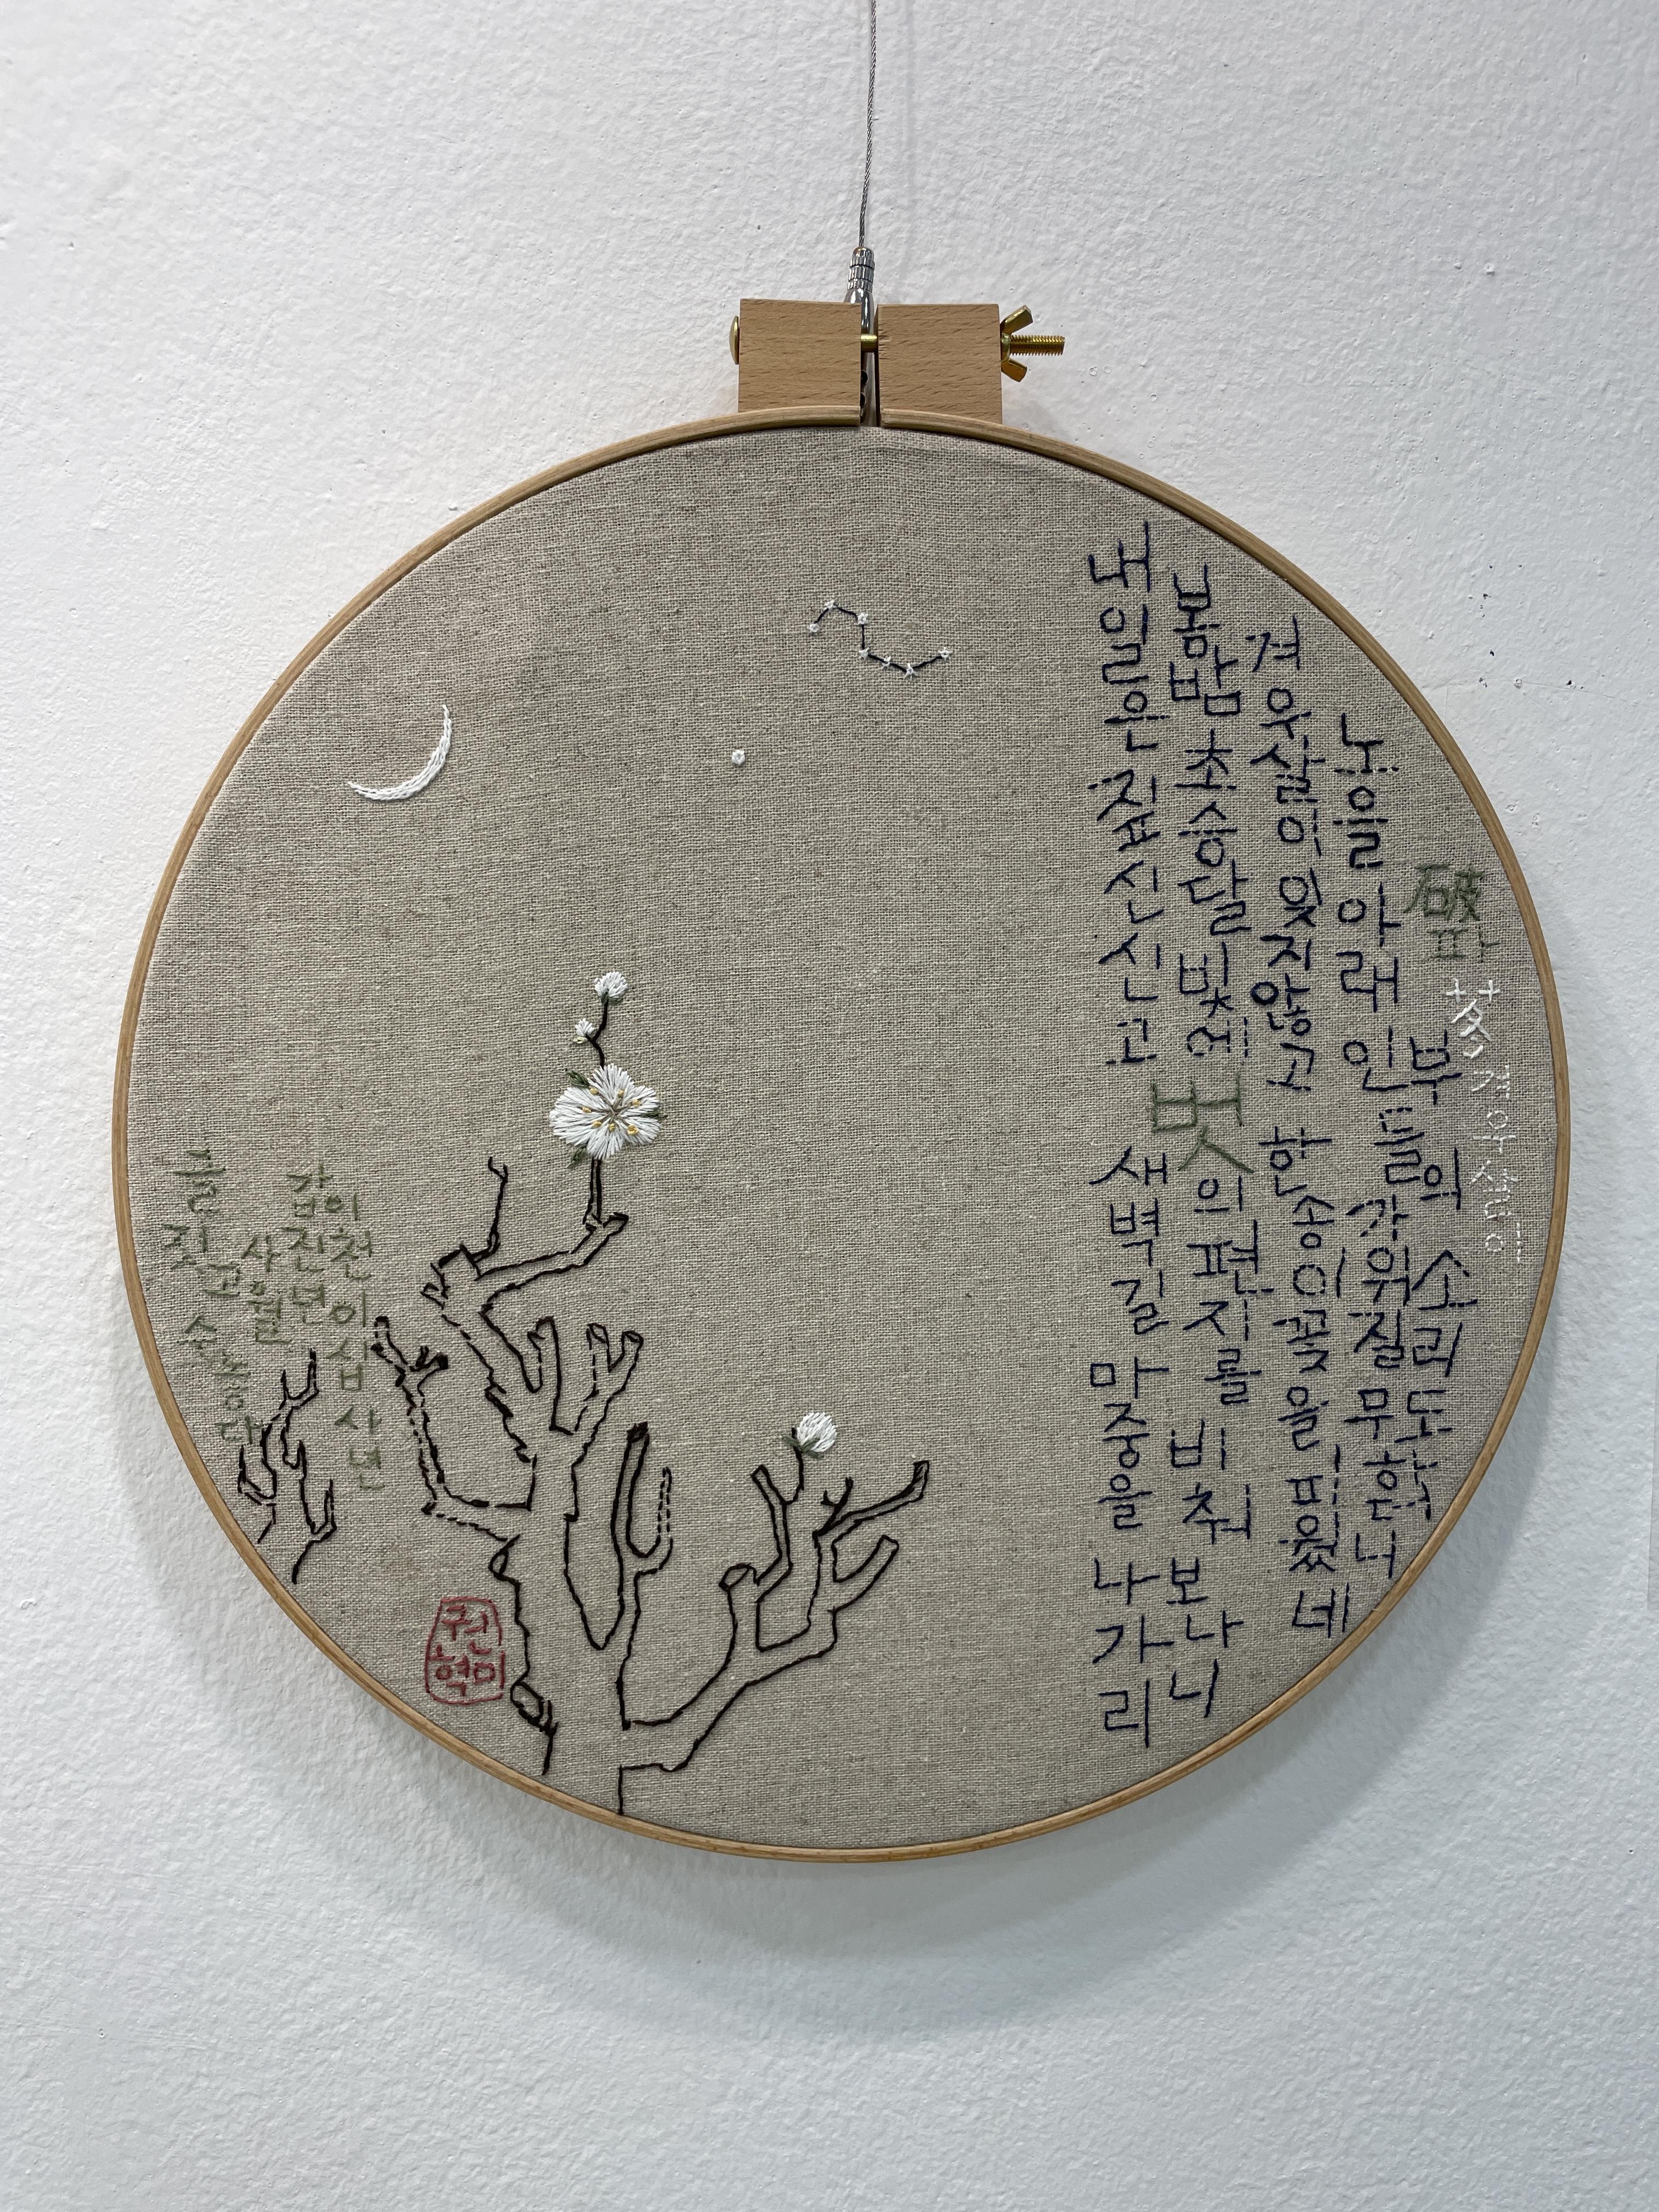 破
파
겨우살이
노을 아래 인부들의 가위질 소리도
겨우살이 잊지않고 한송이 꽃을 피웠네
봄밤 초승달 빛에 벗의 편지를 비춰 보나니
내일은 짚신 신고 새벽길 마중을 나가리
이천이십사년
갑진년
사월
글 짓고 수놓다
권
혁미